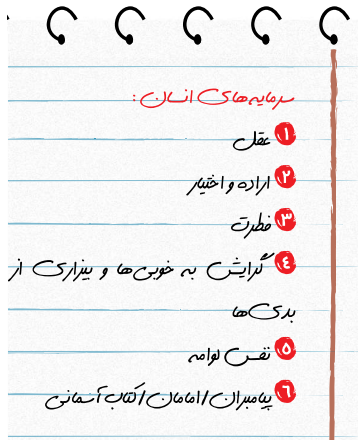 سرمایه‌های انسان:
۱ عقل
۲ اراده و اختیار
۳ فطرت
٤ گرایش به خوبی‌ها و بیزاری از
بدی‌ها
۵ نفس لوامه
٦ پیامبران / امامان / کتاب آسمانی